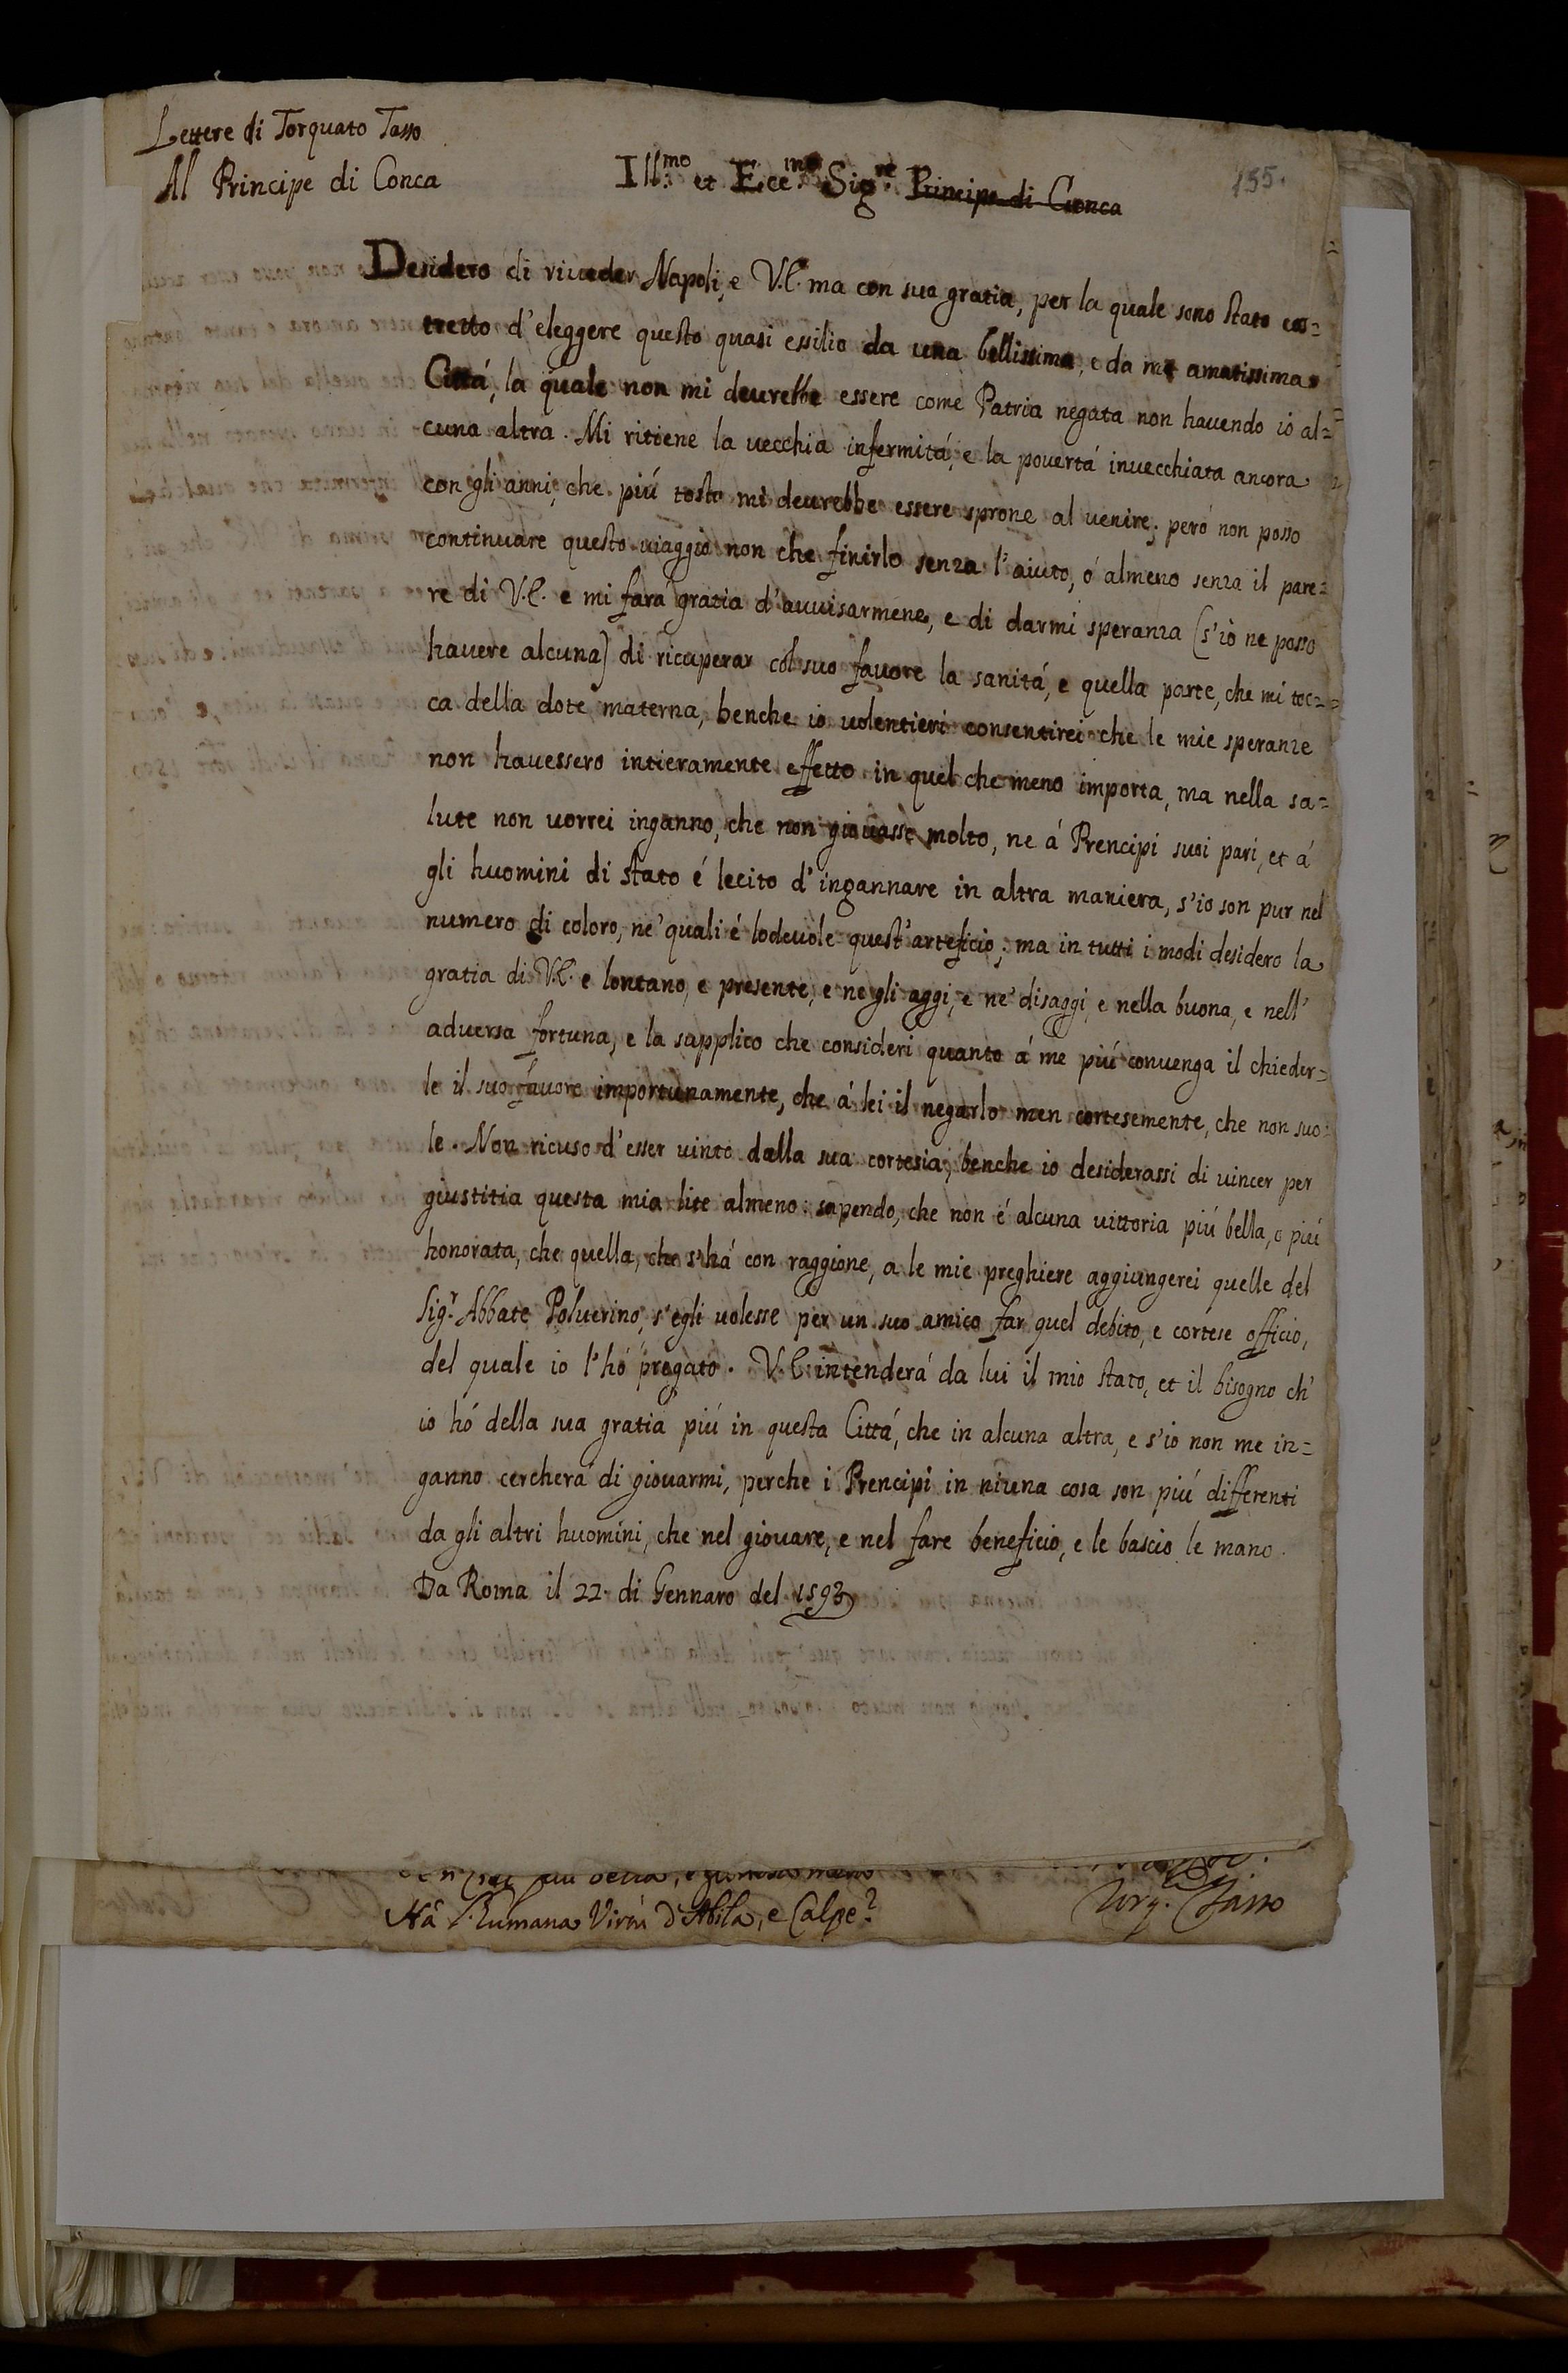 Lettere di Torquato Tasso
Al Principe di Conca
Ill.mo et Ecc.mo Sig.re Principe di Conca
155.
Desidero di riveder Napoli, e V.E. ma con sua gratia, per la quale sono stato cos=
tretto d'eleggere questo quasi essilio da una bellissima, e da me amatissima
Cittá, la quale non mi deurebbe essere come Patria negata non havendo io al=
cuna altra. Mi ritiene la vecchia infermitá, e la povertá invecchiata ancora
con gli anni, che piú tosto mi deurebbe essere sprone al venire; peró non posso
continuare questo viaggio non che finirlo senza l'aiuto, ó almeno senza il pare=
re di V.E. e mi fará gratia d'avvisarmene, e di darmi speranza (s'io ne posso
havere alcuna) di ricuperar col suo favore la sanitá, e quella parte, che mi toc=
ca della dote materna, benche io volentieri consentirei che le mie speranze
non havessero intieramente effetto in quel che meno importa, ma nella sa=
lute non vorrei inganno, che non giovasse molto, ne á Prencipi suoi pari, et á
gli huomini di stato é lecito d'ingannare in altra maniera, s'io son pur nel
numero di coloro, ne' quali é lodevole quest'arteficio; ma in tutti i modi desidero la
gratia di V.E. e lontano, e presente, e ne gli aggi, e ne' disaggi, e nella buona, e nell'
adversa fortuna, e la sapplico che consideri quanto á me piú convenga il chieder=
le il suo favore importunamente, che á lei il negarlo men cortesemente, che non suo=
le. Non ricuso d'esser vinto dalla sua cortesia, benche io desiderassi di vincer per
giustitia questa mia lite almeno: sapendo, che non é alcuna vittoria piú bella, o piú
honorata, che quella, che s'há con raggione, a le mie preghiere aggiungerei quelle del
Sig.r Abbate Polverino, s'egli volesse per un suo amico far quel debito, e cortese officio,
del quale io l'hó pregato. V.E. intenderá da lui il mio stato, et il bisogno ch'
io hó della sua gratia piú in questa Cittá, che in alcuna altra, e s'io non me in=
ganno cercherá di giovarmi, perche i Prencipi in niuna cosa son piú differenti
da gli altri huomini, che nel giovare, e nel fare beneficio, e le bascio le mano.
Da Roma il 22. di Gennaro del 1593
Há l'humana Virtù d'Abila, e Calpe?
Torq. Tasso